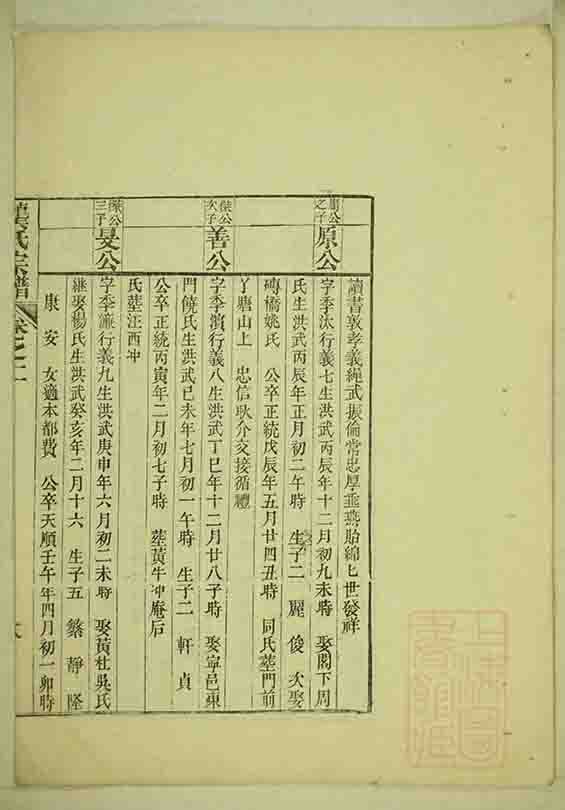 讀書敦孝義繩武振倫常忠厚垂燕貽綿七世發祥
之子
原公
字季汰行義七生洪武丙辰年十二月初九未時 娶閣下周
氏生洪武丙辰年正月初二午時 生子二 麗 俊 次娶
磚橋姚氏 公卒正統戊辰年五月廿四丑時 同氏塟門前
丫塘山上 忠信耿介交接循禮
次子
善公
字季濱行義八生洪武丁巳年十二月廿八子時 娶寧邑東
門饒氏生洪武己未年七月初一午時 生子二 軒 貞
公卒正統丙寅年二月初七子時 塟黃牛冲庵后
氏塟汪西冲
三子
旻公
字季濂行義九生洪武庚申年六月初二未時 娶黃杜吳氏
繼娶楊氏生洪武癸亥年二月十六 生子五 靜 隆
康 安 女適本都費 公卒天順壬午年四月初一卯時
氏宗譜
卷之二